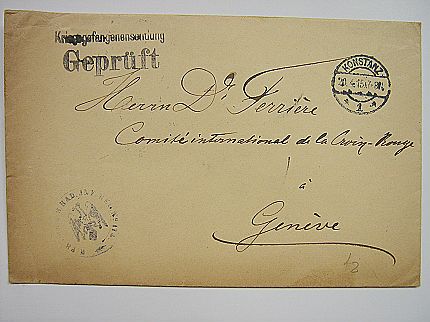 Kriegsgefangenensendung
Geprüft
KONSTANZ
1
Herrn Dr Ferrière
Comité international de la Croix-Rouge
à
Genève
1/2